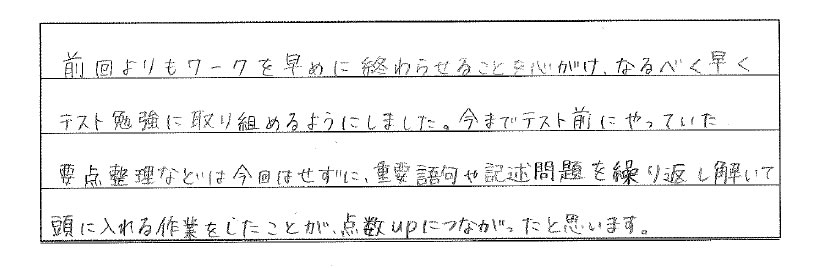 前回よりもワークを早めに終わらせることを心がけ、なるべく早く
テスト勉強に取り組めるようにしました。今までテスト前にやっていた
要点整理などは今回はせずに、重要語句や記述問題を繰り返し解いて
頭に入れる作業をしたことが、点数upにつながったと思います。